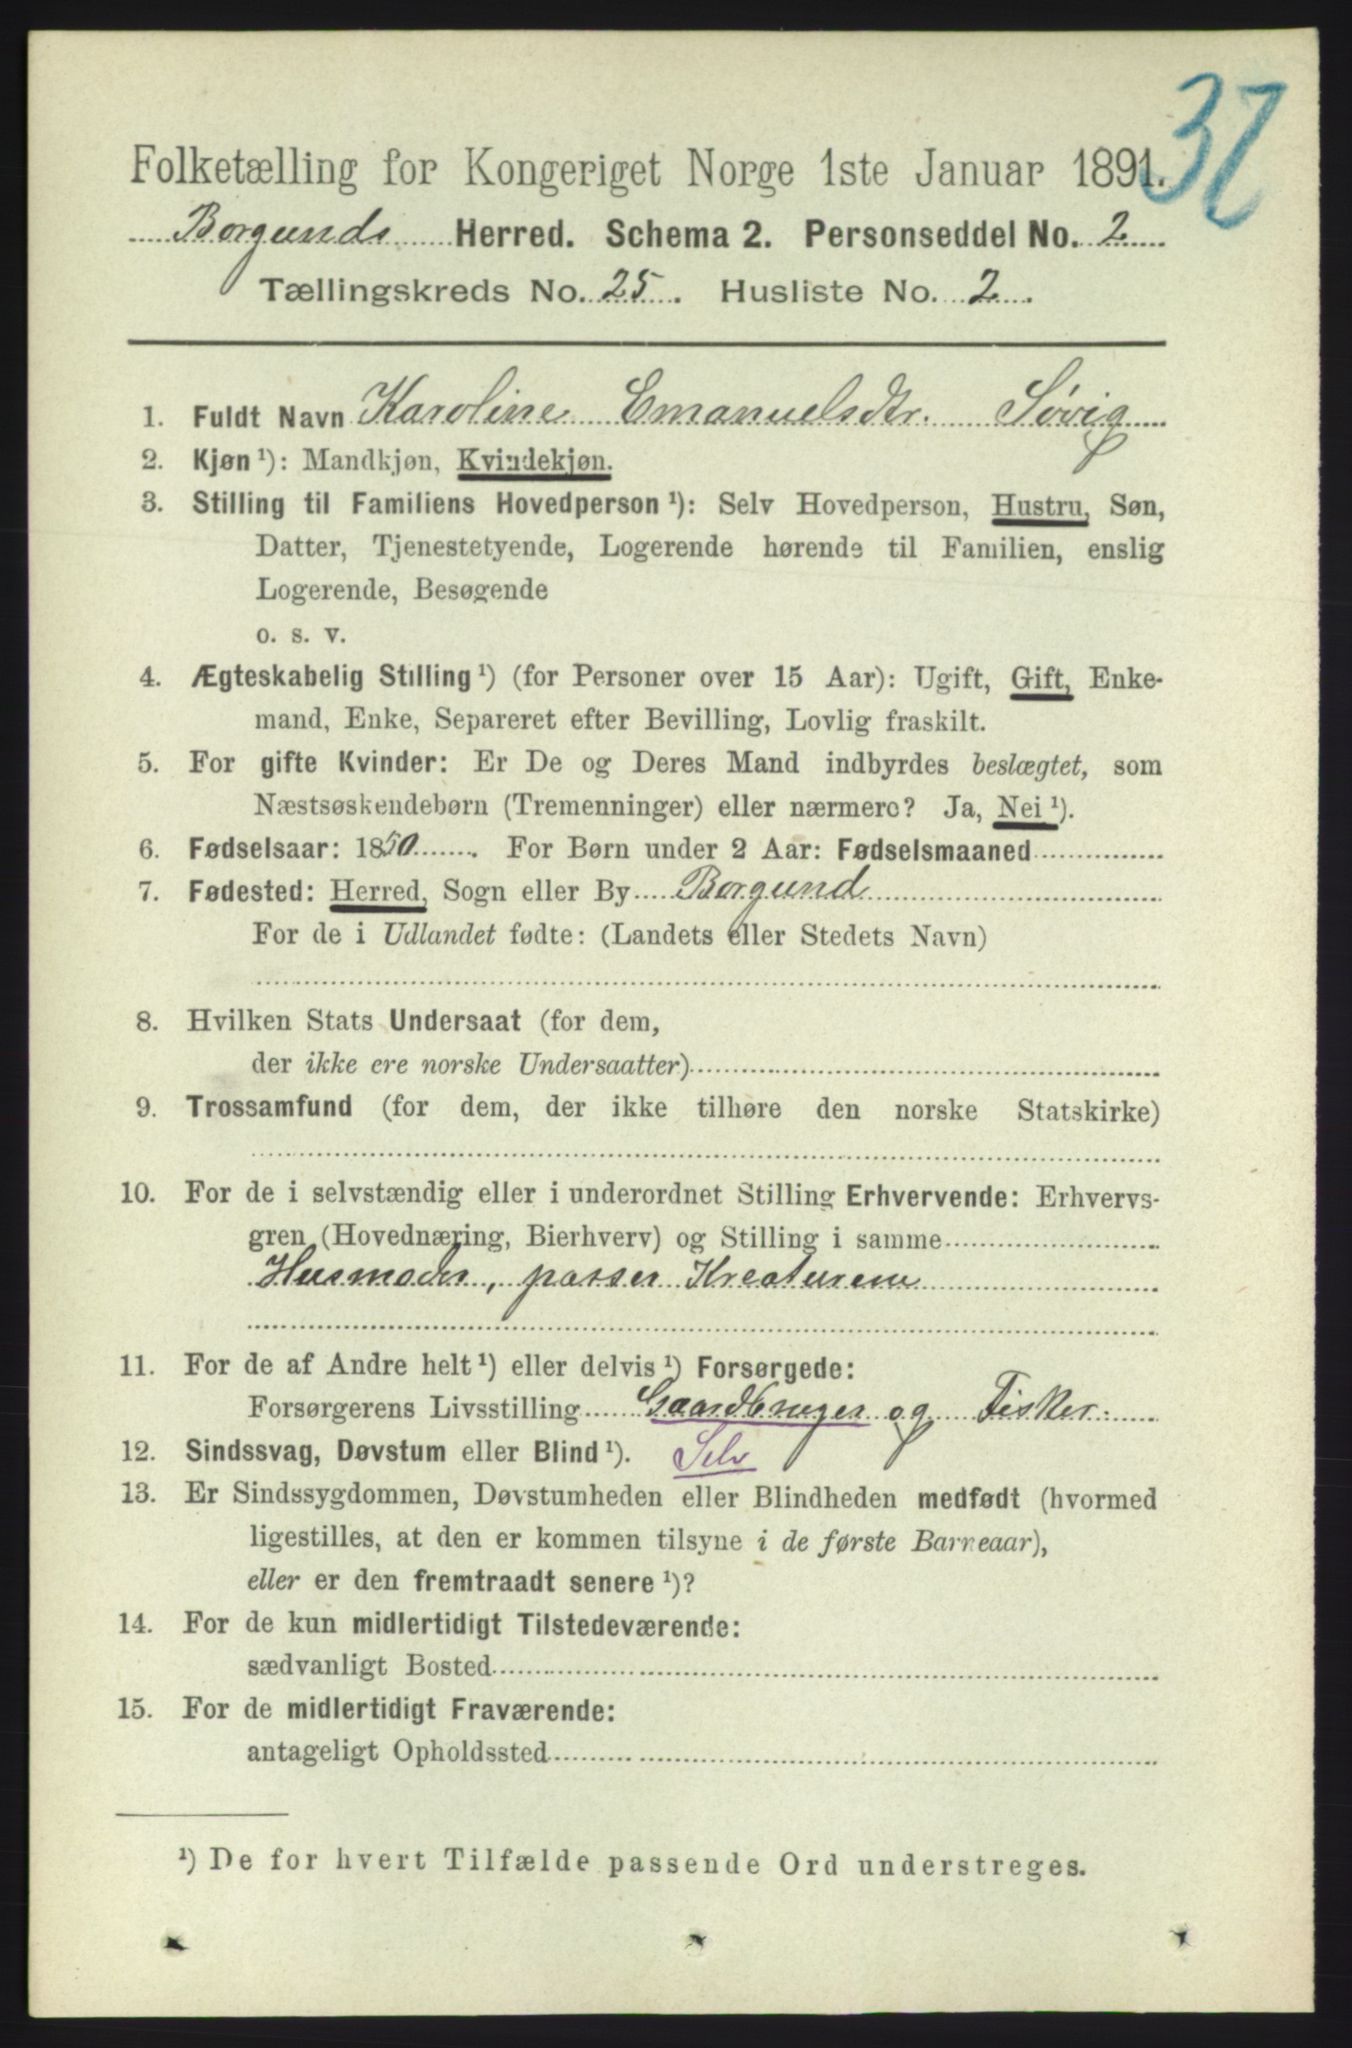 37
Folketælling for Kongeriget Norge 1ste Januar 1891.
Borgunds Herred. Schema 2. Personseddel No. 2
Tællingskreds No. 25. Husliste No. 2.
1. Fuldt Navn Karoline Emanuelsdtr. Søvig
2. Kjøn ¹): Mandkjøn, Kvindekjøn.
3. Stilling til Familiens Hovedperson ¹): Selv Hovedperson, Hustru, Søn,
Datter, Tjenestetyende, Logerende hørende til Familien, enslig
Logerende, Besøgende
o. s. v.
4. Ægteskabelig Stilling ¹) (for Personer over 15 Aar): Ugift, Gift, Enke-
mand, Enke, Separeret efter Bevilling, Lovlig fraskilt.
5. For gifte Kvinder: Er De og Deres Mand indbyrdes beslægtet, som
Næstsøskendebørn (Tremenninger) eller nærmere? Ja, Nei ¹).
6. Fødselsaar: 1850. For Børn under 2 Aar: Fødselsmaaned
7. Fødested: Herred, Sogn eller By Borgund
For de i Udlandet fødte: (Landets eller Stedets Navn)
8. Hvilken Stats Undersaat (for dem,
der ikke ere norske Undersaatter)
9. Trossamfund (for dem, der ikke tilhøre den norske Statskirke)
10. For de i selvstændig eller i underordnet Stilling Erhvervende: Erhvervs-
gren (Hovednæring, Bierhverv) og Stilling i samme
Husmoder, passer Kreaturene
11. For de af Andre helt ¹) eller delvis ¹) Forsørgede:
Forsørgerens Livsstilling Gaardbruger og Fisker.
12. Sindssvag, Døvstum eller Blind ¹). Selv
13. Er Sindssygdommen, Døvstumheden eller Blindheden medfødt (hvormed
ligestilles, at den er kommen tilsyne i de første Barneaar),
eller er den fremtraadt senere ¹)?
14. For de kun midlertidigt Tilstedeværende:
sædvanligt Bosted
15. For de midlertidigt Fraværende:
antageligt Opholdssted
¹) De for hvert Tilfælde passende Ord understreges.